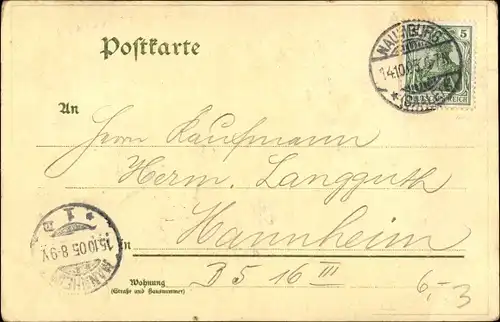 Postkarte
NAUMBURG
14.10.05
* (SAALE) *
5
REICH
An
Herrn Kaufmann
Herm. Langguth
in
Mannheim
B 5 16 III
Wohnung
(Straße und Hausnummer)
6.-3
MANNHEIM
15.10.05.8-9V.
* 1 *